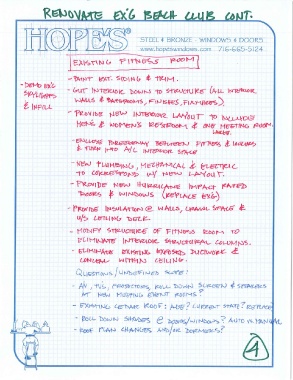 RENOVATE EX'G BEACH CLUB CONT.
HOPE'S®
STEEL & BRONZE · WINDOWS & DOORS
www.hopeswindows.com 716-665-5124
EXISTING FITNESS ROOM
- PAINT EXT. SIDING & TRIM.
- DEMO EX'G SKYLIGHTS & INFILL
- GUT INTERIOR DOWN TO STRUCTURE (ALL INTERIOR
WALLS & BATHROOMS, FINISHES, FIXTURES).
- PROVIDE NEW INTERIOR LAYOUT TO INCLUDE
MENS & WOMEN'S RESTROOM & ONE MEETING ROOM
- ENCLOSE BREEZEWAY BETWEEN FITNESS &
& TURN INTO A/C INTERIOR SPACE
- NEW PLUMBING, MECHANICAL & ELECTRIC
TO CORRESPOND W/ NEW LAYOUT.
- PROVIDE NEW HURRICANE IMPACT RATED
DOORS & WINDOWS (REPLACE EX'G)
- PROVIDE INSULATION @ WALLS, CRAWL SPACE &
U/S CEILING DECK.
- MODIFY STRUCTURE OF FITNESS ROOM TO
ELIMINATE INTERIOR STRUCTURAL COLUMNS.
- ELIMINATE EXISTING EXPOSED DUCTWORK &
CONCEAL WITHIN CEILING.
QUESTIONS/UNDEFINED SCOPE:
- AV, TV'S, PROJECTORS, ROLL DOWN SCREEN & SPEAKERS
AT NEW MEETING EVENT ROOMS?
- EXISTING CEDAR ROOF: AGE? CURRENT STATE? REPLACE?
- ROLL DOWN SHADES @ DOORS/WINDOWS? AUTO VS MANUAL
- ROOF PLAN CHANGES AND/OR DORMERS?
4